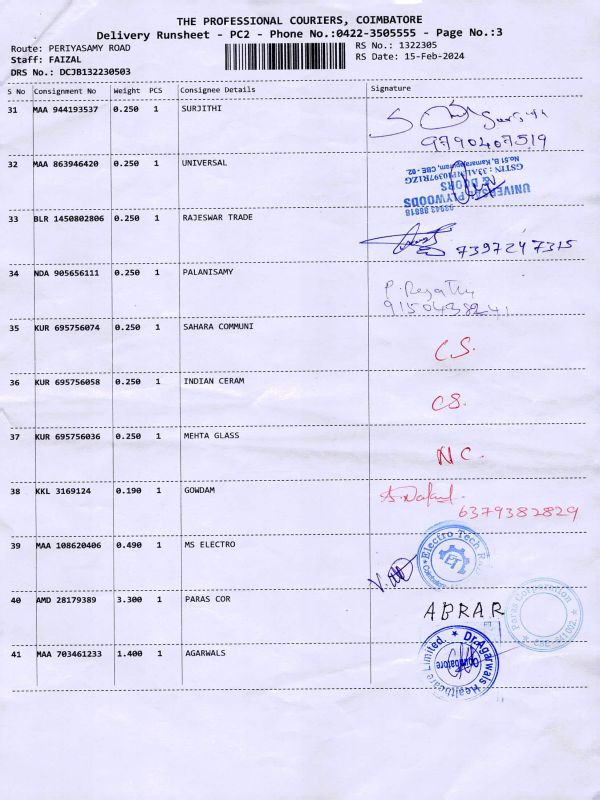 THE PROFESSIONAL COURIERS, COIMBATORE
Delivery Runsheet - PC2 - Phone No.:0422-3505555 - Page No.:3
Route: PERIYASAMY ROAD
RS No.: 1322305
Staff: FAIZAL
RS Date: 15-Feb-2024
DRS No.: DCJB132230503
S No Consignment No Weight PCS Consignee Details Signature
31 MAA 944193537 0.250 1 SURJITHI
9790407519
32 MAA 863946420 0.250 1 UNIVERSAL
UNIVERSAL PLYWOODS
& DOORS
33 BLR 1450802806 0.250 1 RAJESWAR TRADE
7397247315
34 NDA 905656111 0.250 1 PALANISAMY
9150438241
35 KUR 695756074 0.250 1 SAHARA COMMUNI CS.
36 KUR 695756058 0.250 1 INDIAN CERAM CS.
37 KUR 695756036 0.250 1 MEHTA GLASS NC.
38 KKL 3169124 0.190 1 GOWDAM
6379382829
39 MAA 108620406 0.490 1 MS ELECTRO
Electro Tech
ET
40 AMD 28179389 3.300 1 PARAS COR ABRAR
Paras Corporation
41 MAA 703461233 1.400 1 AGARWALS
Dr.Agarwals Healthcare Limited.
Coimbatore